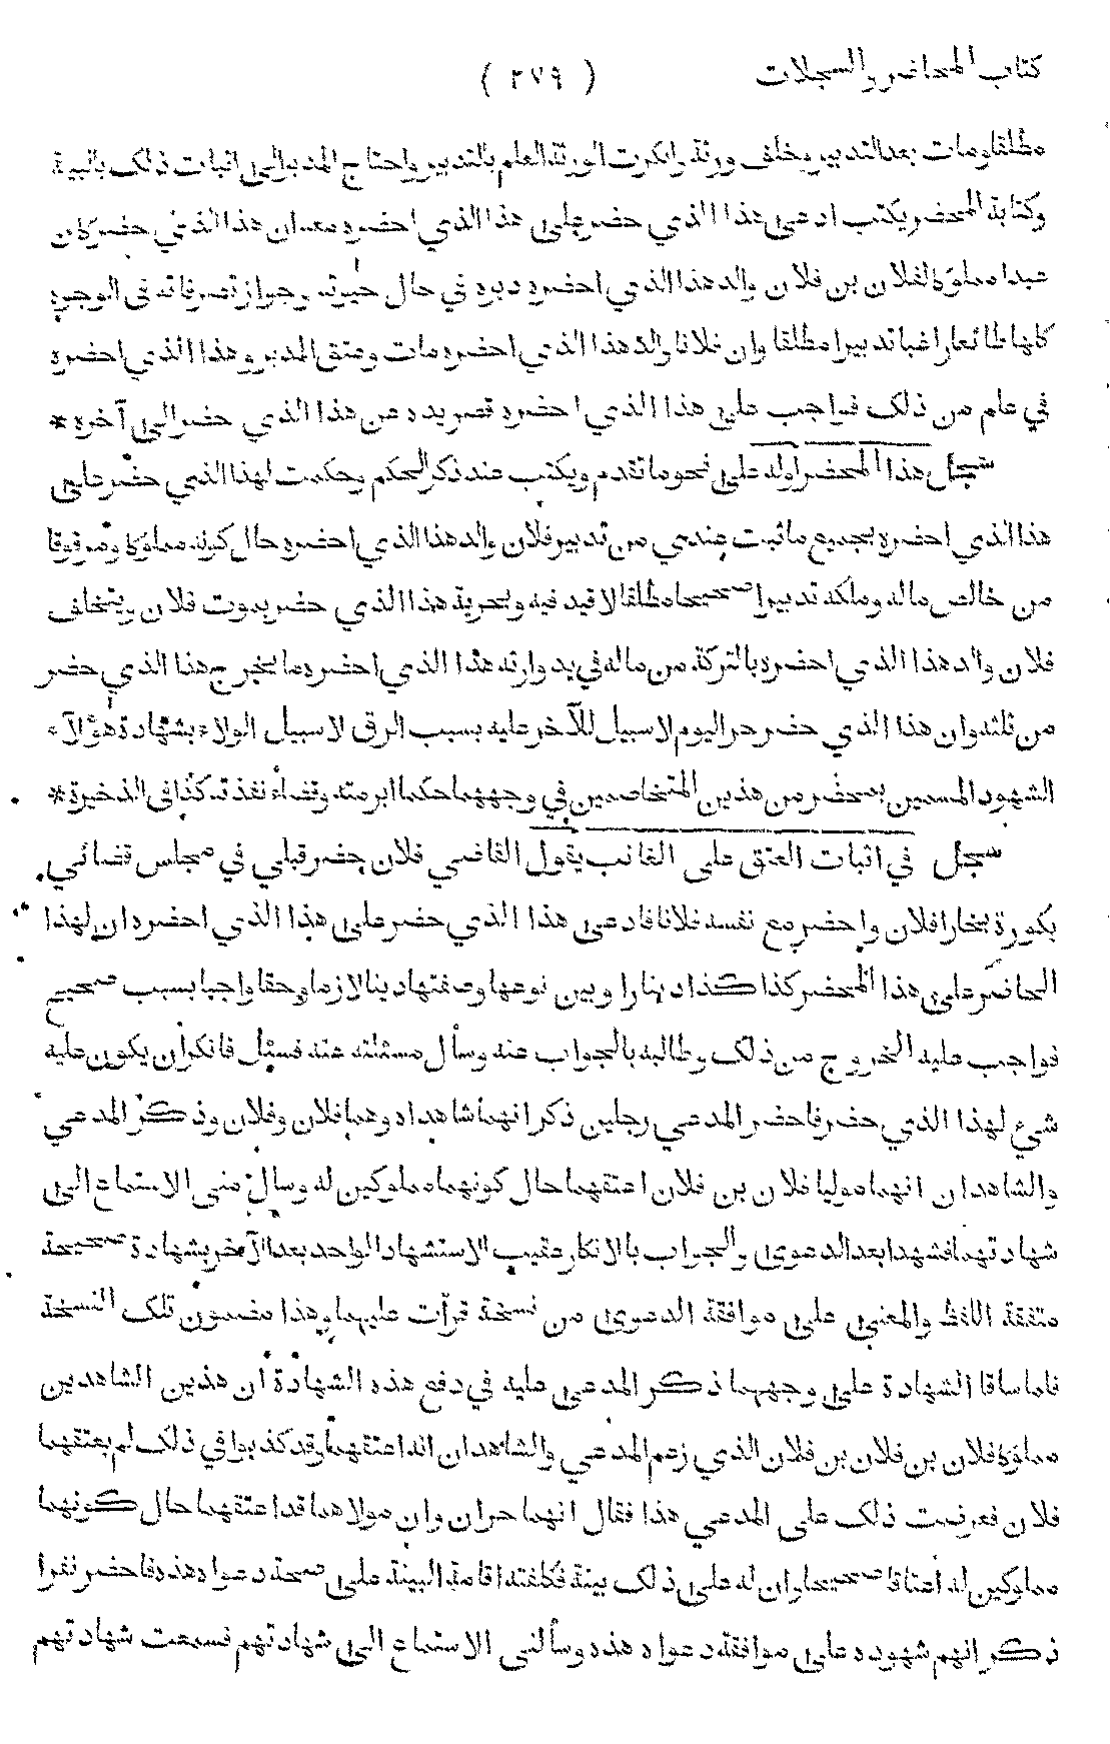 كتاب المحاضر والسجلات ( ٢٧٩ )
مطلقا ومات بعد التدبير وخلف ورثة وانكرت الورثة العلم بالتدبير واحتاج المدبر الى اثبات ذلك بالبينة
وكتابة المحضر يكتب ادعى هذا الذي حضر على هذا الذي احضره معه ان هذا الذي حضر كان
عبدا مملوكا لفلان بن فلان والد هذا الذي احضره دبره في حال حيوته وجواز تصرفاته في الوجوه
كلها طائعا راغبا تدبيرا مطلقا وان فلانا والد هذا الذي احضره مات وعتق المدبر وهذا الذي احضره
في علم من ذلك فواجب على هذا الذي احضره قصر يده عن هذا الذي حضر الى آخره *
سجل هذا المحضر اوله على نحو ما تقدم ويكتب عند ذكر الحكم وحكمت لهذا الذي حضر على
هذا الذي احضره بجميع ما ثبت عندي من تدبير فلان والد هذا الذي احضره حال كونه مملوكا ومرقوقا
من خالص ماله وملكه تدبيرا صحيحا مطلقا لا قيد فيه وبحرية هذا الذي حضر بموت فلان وبتخلف
فلان والد هذا الذي احضره بالتركة من ماله في يد وارثه هذا الذي احضره ما يخرج هذا الذي حضر
من ثلثه وان هذا الذي حضر حر اليوم لا سبيل للآخر عليه بسبب الرق لا سبيل الولاء بشهادة هؤلآء
الشهود المسمين بمحضر من هذين المتخاصمين في وجههما حكما ابرمته وقضاء نفذته كذا في الذخيرة *
سجل في اثبات العتق على الغائب يقول القاضي فلان حضر قبلي في مجلس قضائي
بكورة بخارا فلان واحضر مع نفسه فلانا فادعى هذا الذي حضر على هذا الذي احضره ان لهذا
الحاضر على هذا المحضر كذا كذا دينارا وبين نوعها وصفتها دينا لازما وحقا واجبا بسبب صحيح
فواجب عليه الخروج من ذلك وطالبه بالجواب عنه وسأل مسئلته عنه فسئل فانكر أن يكون عليه
شيء لهذا الذي حضر فاحضر المدعي رجلين ذكر انهما شاهداه وهما فلان وفلان وذكر المدعي
والشاهدان انهما موليا فلان بن فلان اعتقهما حال كونهما مملوكين له وسأل مني الاستماع الى
شهادتهما فشهدا بعد الدعوى والجواب بالانكار عقيب الاستشهاد الواحد بعد الآخر بشهادة صحيحة
متفقة اللفظ والمعنى على موافقة الدعوى من نسخة قرأت عليهما وهذا مضمون تلك النسخة
فلما ساقا الشهادة على وجهها ذكر المدعى عليه في دفع هذه الشهادة أن هذين الشاهدين
مملوكا فلان بن فلان بن فلان الذي زعم المدعي والشاهدان انه اعتقهما وقد كذبوا في ذلك لم يعتقهما
فلان فعرضت ذلك على المدعي هذا فقال انهما حران وان مولاهما قد اعتقهما حال كونهما
مملوكين له أعتاقا صحيحا وان له على ذلك بينة فكلفته اقامة البينة على صحة دعواه هذه فاحضر نفرا
ذكر انهم شهوده على موافقة دعواه هذه وسألنى الاستماع الى شهادتهم فسمعت شهادتهم